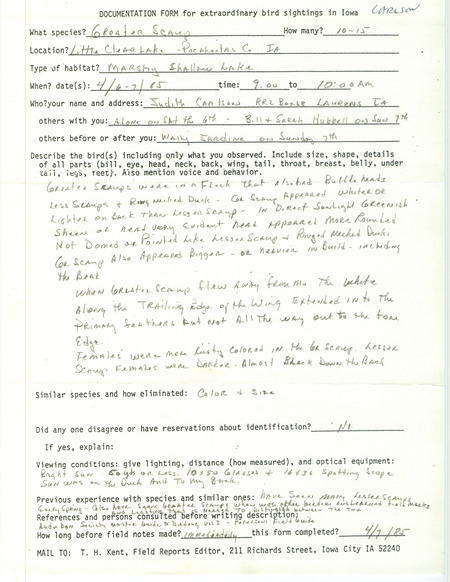 CARLSON
DOCUMENTATION FORM for extraordinary bird sightings in Iowa
What species? Greater Scaup How many? 10-15
Location? Little Clear Lake - Pocahontas Co IA
Type of habitat? Marshy Shallow Lake
When? date(s): 4/6-7/85 time: 9:00 to 10:00 Am
Who?your name and address: Judith Carlson RR2 Laurens IA
others with you: Alone on Sat the 6th - Bill & Sarah Hubbell on Sun 7th
others before or after you: Jardine on Sunday 7th
Describe the bird(s) including only what you observed. Include size, shape, details
of all parts (bill, eye, head, neck, back, wing, tail, throat, breast, belly, under
tail, legs, feet). Also mention voice and behavior.
Greater Scaups were in a Flock that also had Buffleheads
Less Scaups & Ring necked Duck - Gr Scaup Appeared whiter or
Lighter on back than Lesser Scaup - In Direct Sunlight Greenish
Sheen on head very evident head appeared more Rounded
Not Domed or Pointed like Lesser Scaup & Ringed Necked Duck.
Gr Scaup Also Appeared Bigger - or heavier in Build - including
the Beak
When Greater Scaup flew Away from me the white
Along the Trailing Edge of the Wing Extended in to the
Primary feathers but not All the way out to the fore
Edge.
Females were more Rusty colored in the Gr Scaup. Lesser
Scaup Females were Darker - Almost Black Down the Back
Similar species and how eliminated: Color & Size
Did any one disagree or have reservations about identification? No
If yes, explain:
Viewing conditions: give lighting, distance (how measured), and optical equipment:
Bright Sun 50 yds or Less. 10x50 Glasses & Spotting Scope
Sun was on the Duck And To my Back.
Previous experience with species and similar ones: Have Seen Many Lesser Scaups
Every Spring - Also have seen Greater Scaups when with other birders and learned field marks
to distinguish between the Two
References and persons consulted before writing description:
Audubon Society Master Guide to Birding Vol 1 - Peterson Field Guide
How long before field notes made? immediately this form completed? 4/7/85
MAIL TO: T. H. Kent, Field Reports Editor, 211 Richards Street, Iowa City IA 52240